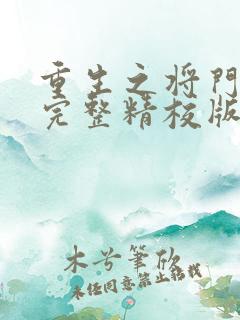 重生之将門
完整精校版
木兮筆欣
未经同意禁止转载